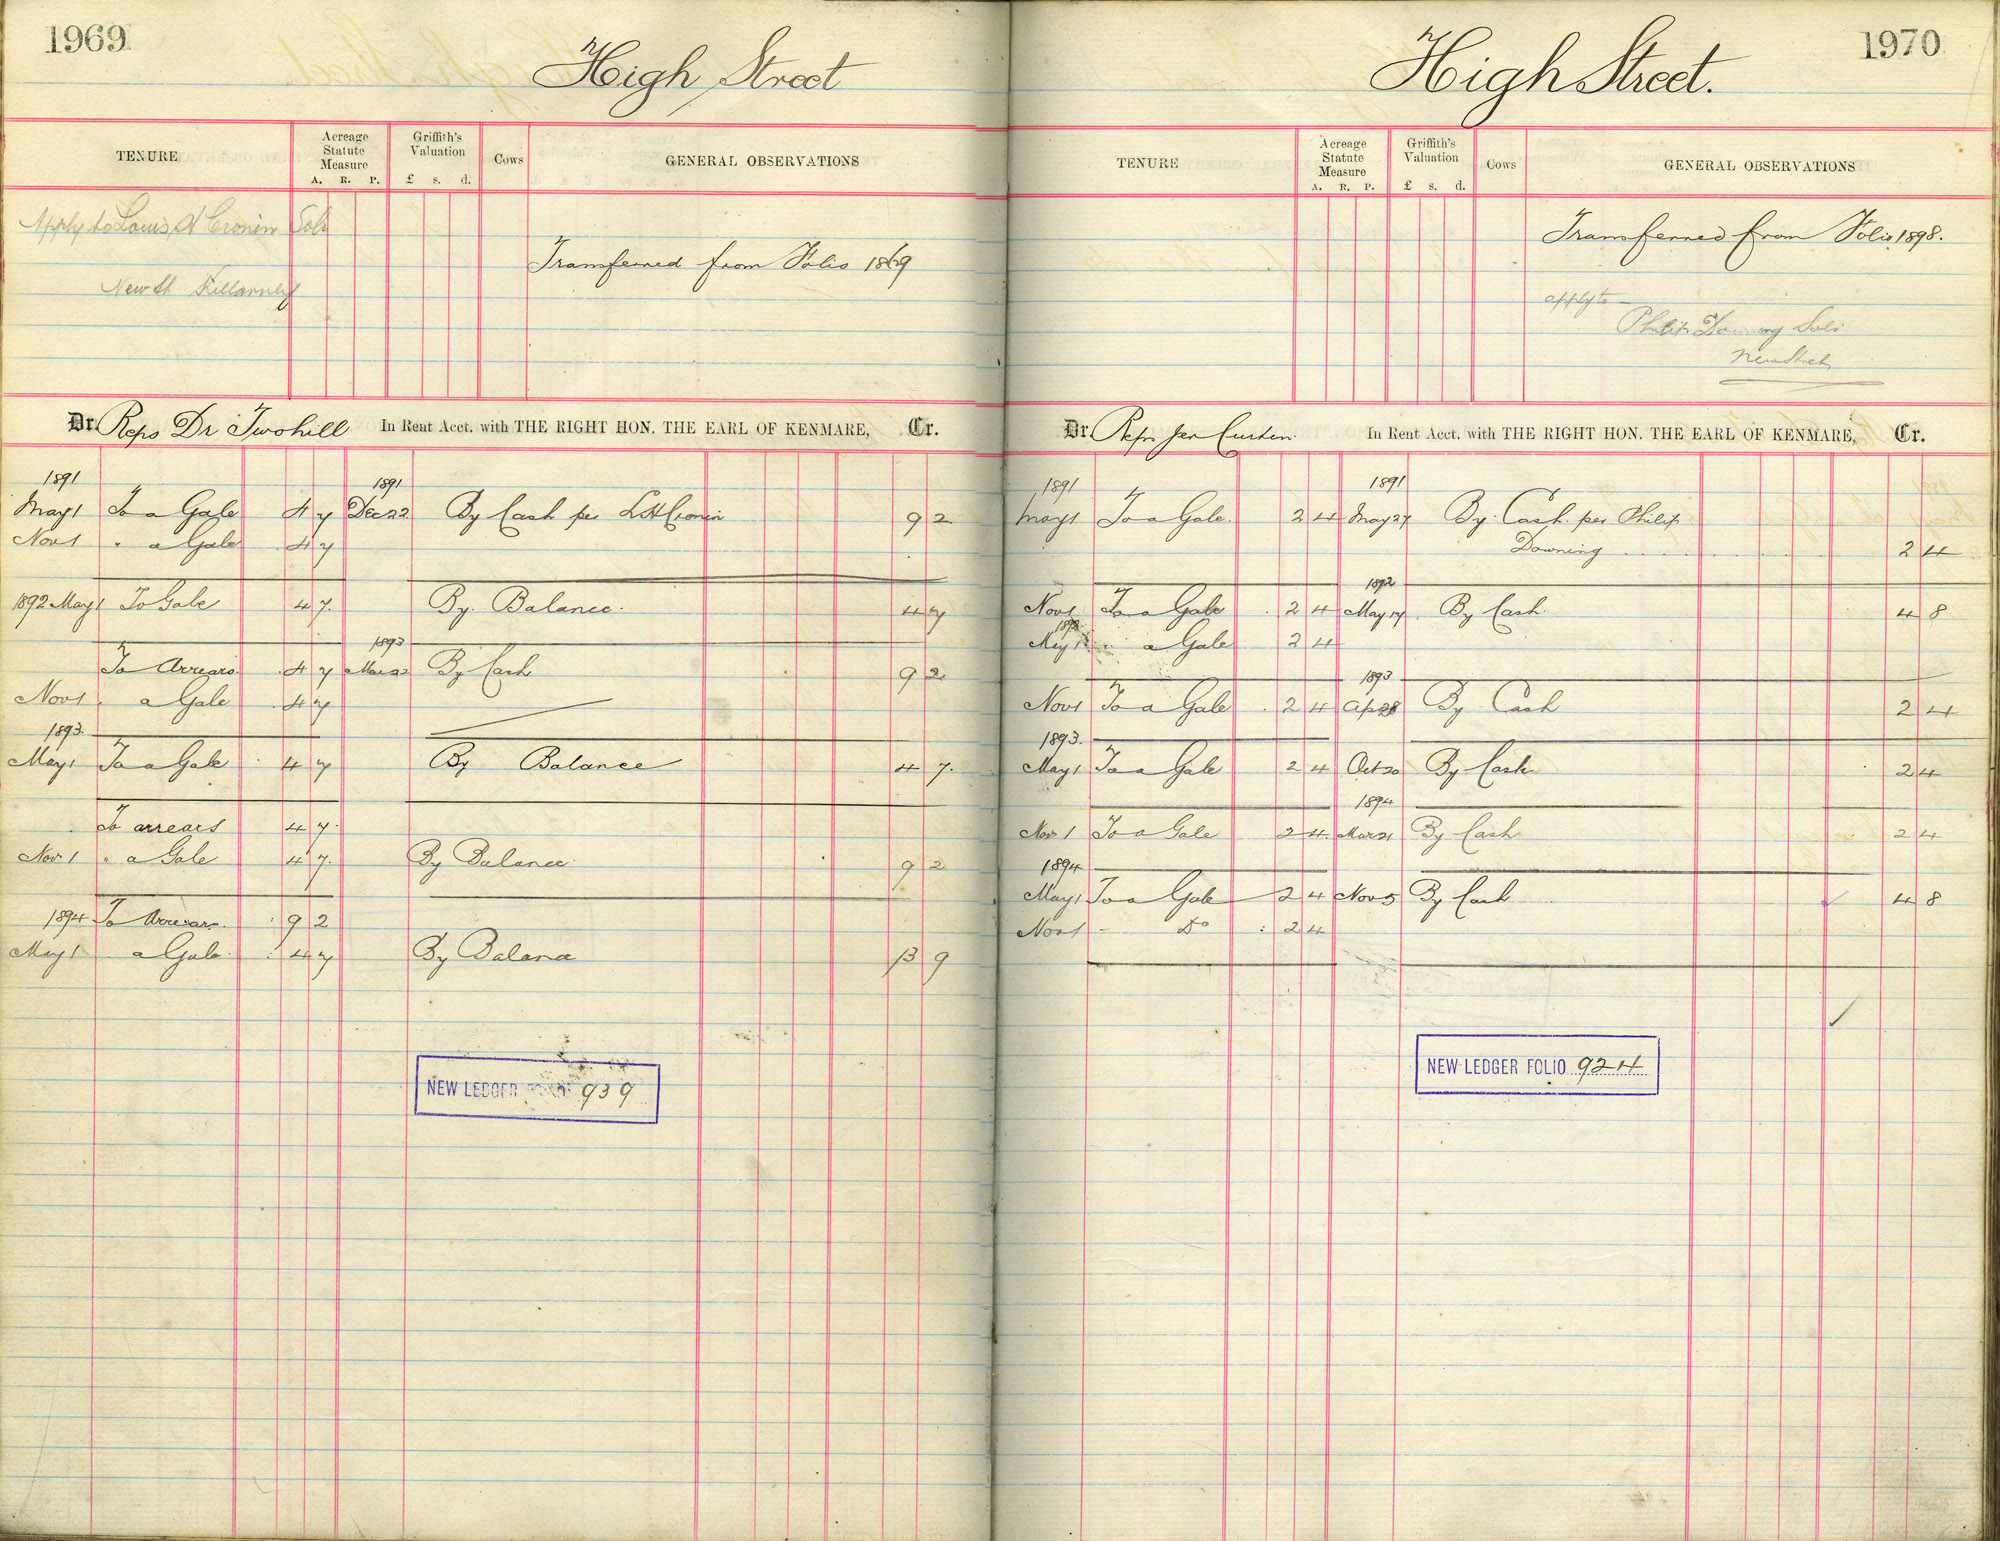 1969
High Street
TENURE
Acreage Statute Measure
A. R. P.
Griffith's Valuation
£ s. d.
Cows
GENERAL OBSERVATIONS
Apply to Louis H Cronin Solr
New St Killarney
Transferred from Folio 1869
Dr. Reps Dr Twohill In Rent Acct. with THE RIGHT HON. THE EARL OF KENMARE, Cr.
1891 1891
May 1 To a Gale 4 7 Dec 22 By Cash per L H Cronin 9 2
Nov 1 " a Gale 4 7
1892 May 1 To Gale 4 7 By Balance 4 7
1893
To Arrears 4 7 Mar 22 By Cash 9 2
Nov 1 a Gale 4 7
1893
May 1 To a Gale 4 7 By Balance 4 7
To arrears 4 7
Nov 1 " a Gale 4 7 By Balance 9 2
1894 To Arrears 9 2
May 1 a Gale 4 7 By Balance 13 9
NEW LEDGER FOLIO 939
1970
High Street.
TENURE
Acreage Statute Measure
A. R. P.
Griffith's Valuation
£ s. d.
Cows
GENERAL OBSERVATIONS
Transferred from Folio 1898.
apply to —
Philip Downing Solr
New Street
Dr. Reps Jer Curten In Rent Acct. with THE RIGHT HON. THE EARL OF KENMARE, Cr.
1891 1891
May 1 To a Gale 2 4 May 27 By Cash per Philip
Downing 2 4
1892
Nov 1 To a Gale 2 4 May 17 By Cash 4 8
1892
May 1 " a Gale 2 4
1893
Nov 1 To a Gale 2 4 Ap 28 By Cash 2 4
1893
May 1 To a Gale 2 4 Oct 20 By Cash 2 4
1894
Nov 1 To a Gale 2 4 Mar 21 By Cash 2 4
1894
May 1 To a Gale 2 4 Nov 5 By Cash 4 8
Nov 1 - Do 2 4
NEW LEDGER FOLIO 924